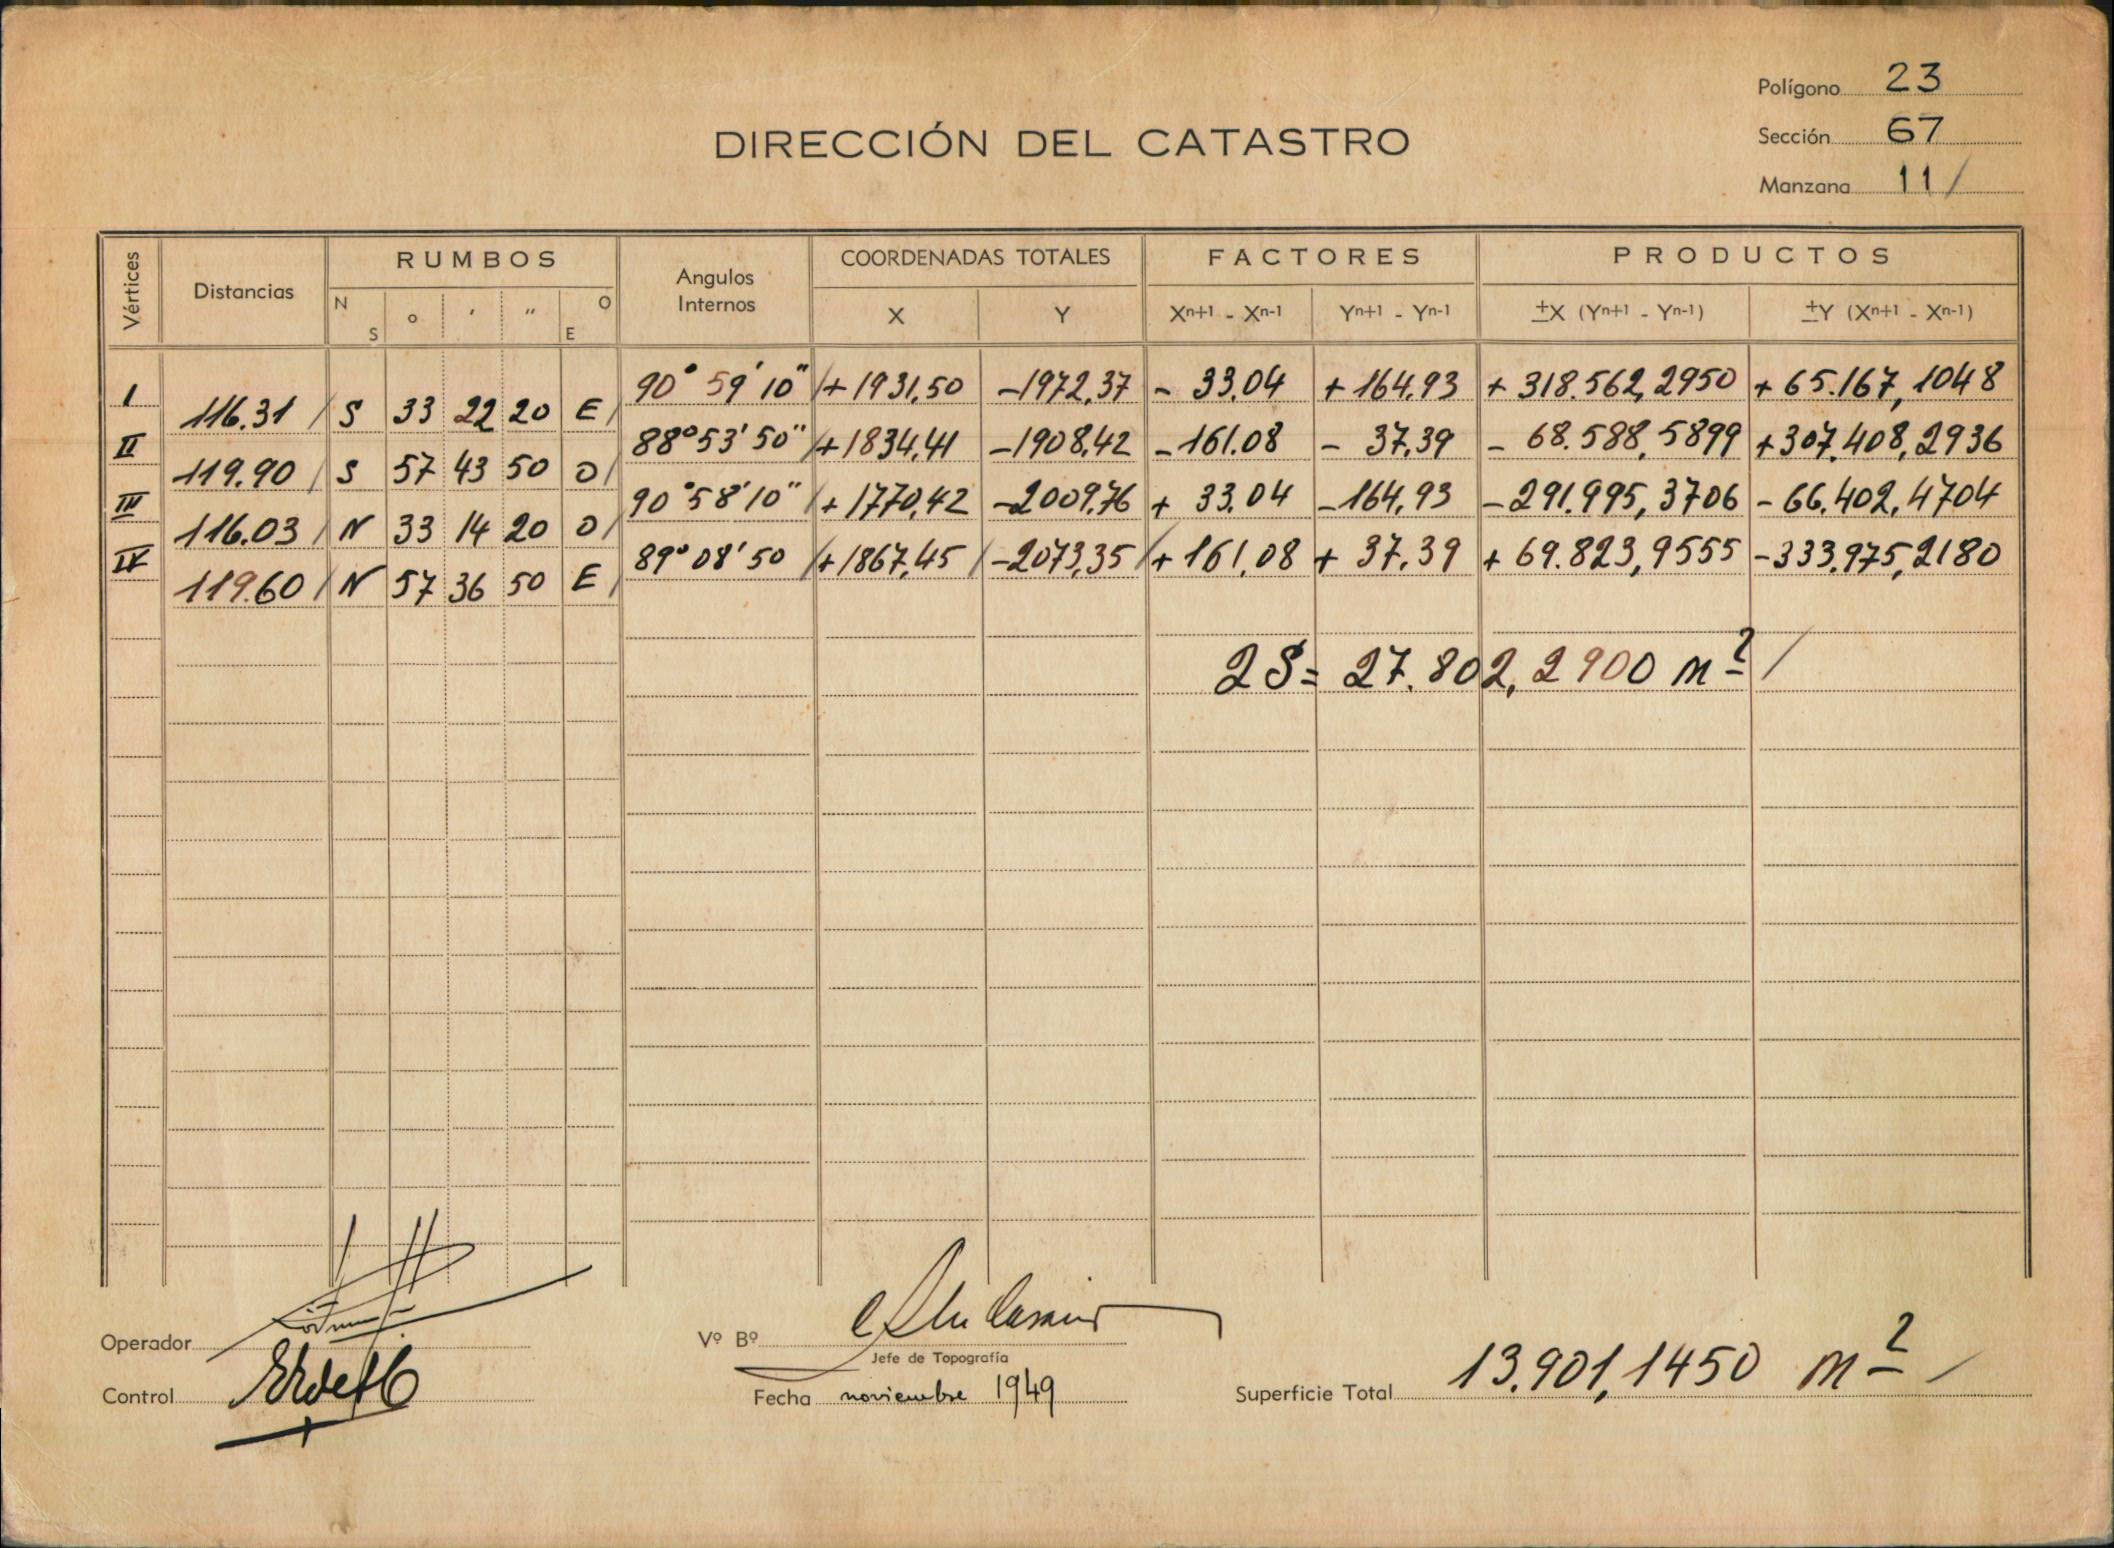 Polígono 23
DIRECCIÓN DEL CATASTRO
Sección 67
Manzana 11 /
Vértices Distancias RUMBOS Angulos Internos COORDENADAS TOTALES FACTORES PRODUCTOS
N S ° ' " O E X Y Xn+1 - Xn-1 Yn+1 - Yn-1 ±X (Yn+1 - Yn-1) ±Y (Xn+1 - Xn-1)
I 90° 59' 10" /+ 1931,50 -1972,37 - 33.04 + 164.93 + 318.562,2950 + 65.167,1048
116.31 / S 33 22 20 E /
II 88° 53' 50" /+ 1834,41 -1908,42 -161.08 - 37,39 - 68.588,5899 +307.408,2936
119.90 / S 57 43 50 O /
III 90° 58' 10" /+ 1770,42 -2009,76 + 33,04 -164,93 -291.995,3706 - 66.402,4704
116.03 / N 33 14 20 O /
IV 89° 08' 50 /+ 1867,45 /-2073,35 /+ 161,08 + 37.39 + 69.823,9555 -333.975,2180
119.60 / N 57 36 50 E /
2S= 27.802,2900 m² /
Operador
Vº Bº
Jefe de Topografía
Control
Fecha noviembre 1949
Superficie Total 13.901,1450 m² /